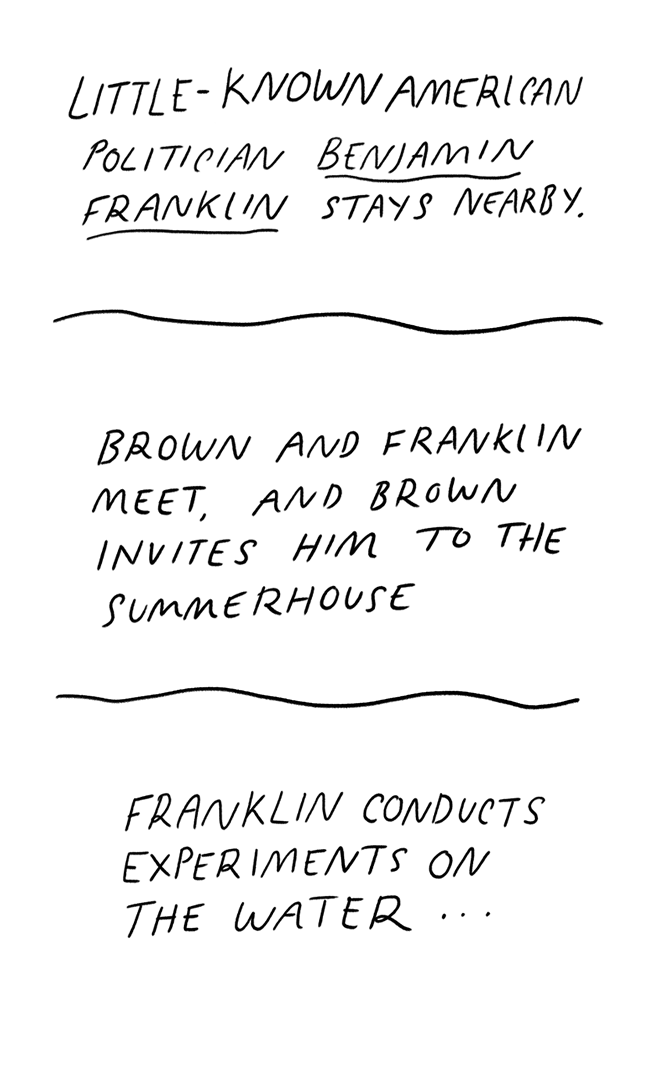 LITTLE-KNOWN AMERICAN
POLITICIAN BENJAMIN
FRANKLIN STAYS NEARBY.
BROWN AND FRANKLIN
MEET, AND BROWN
INVITES HIM TO THE
SUMMERHOUSE
FRANKLIN CONDUCTS
EXPERIMENTS ON
THE WATER ...